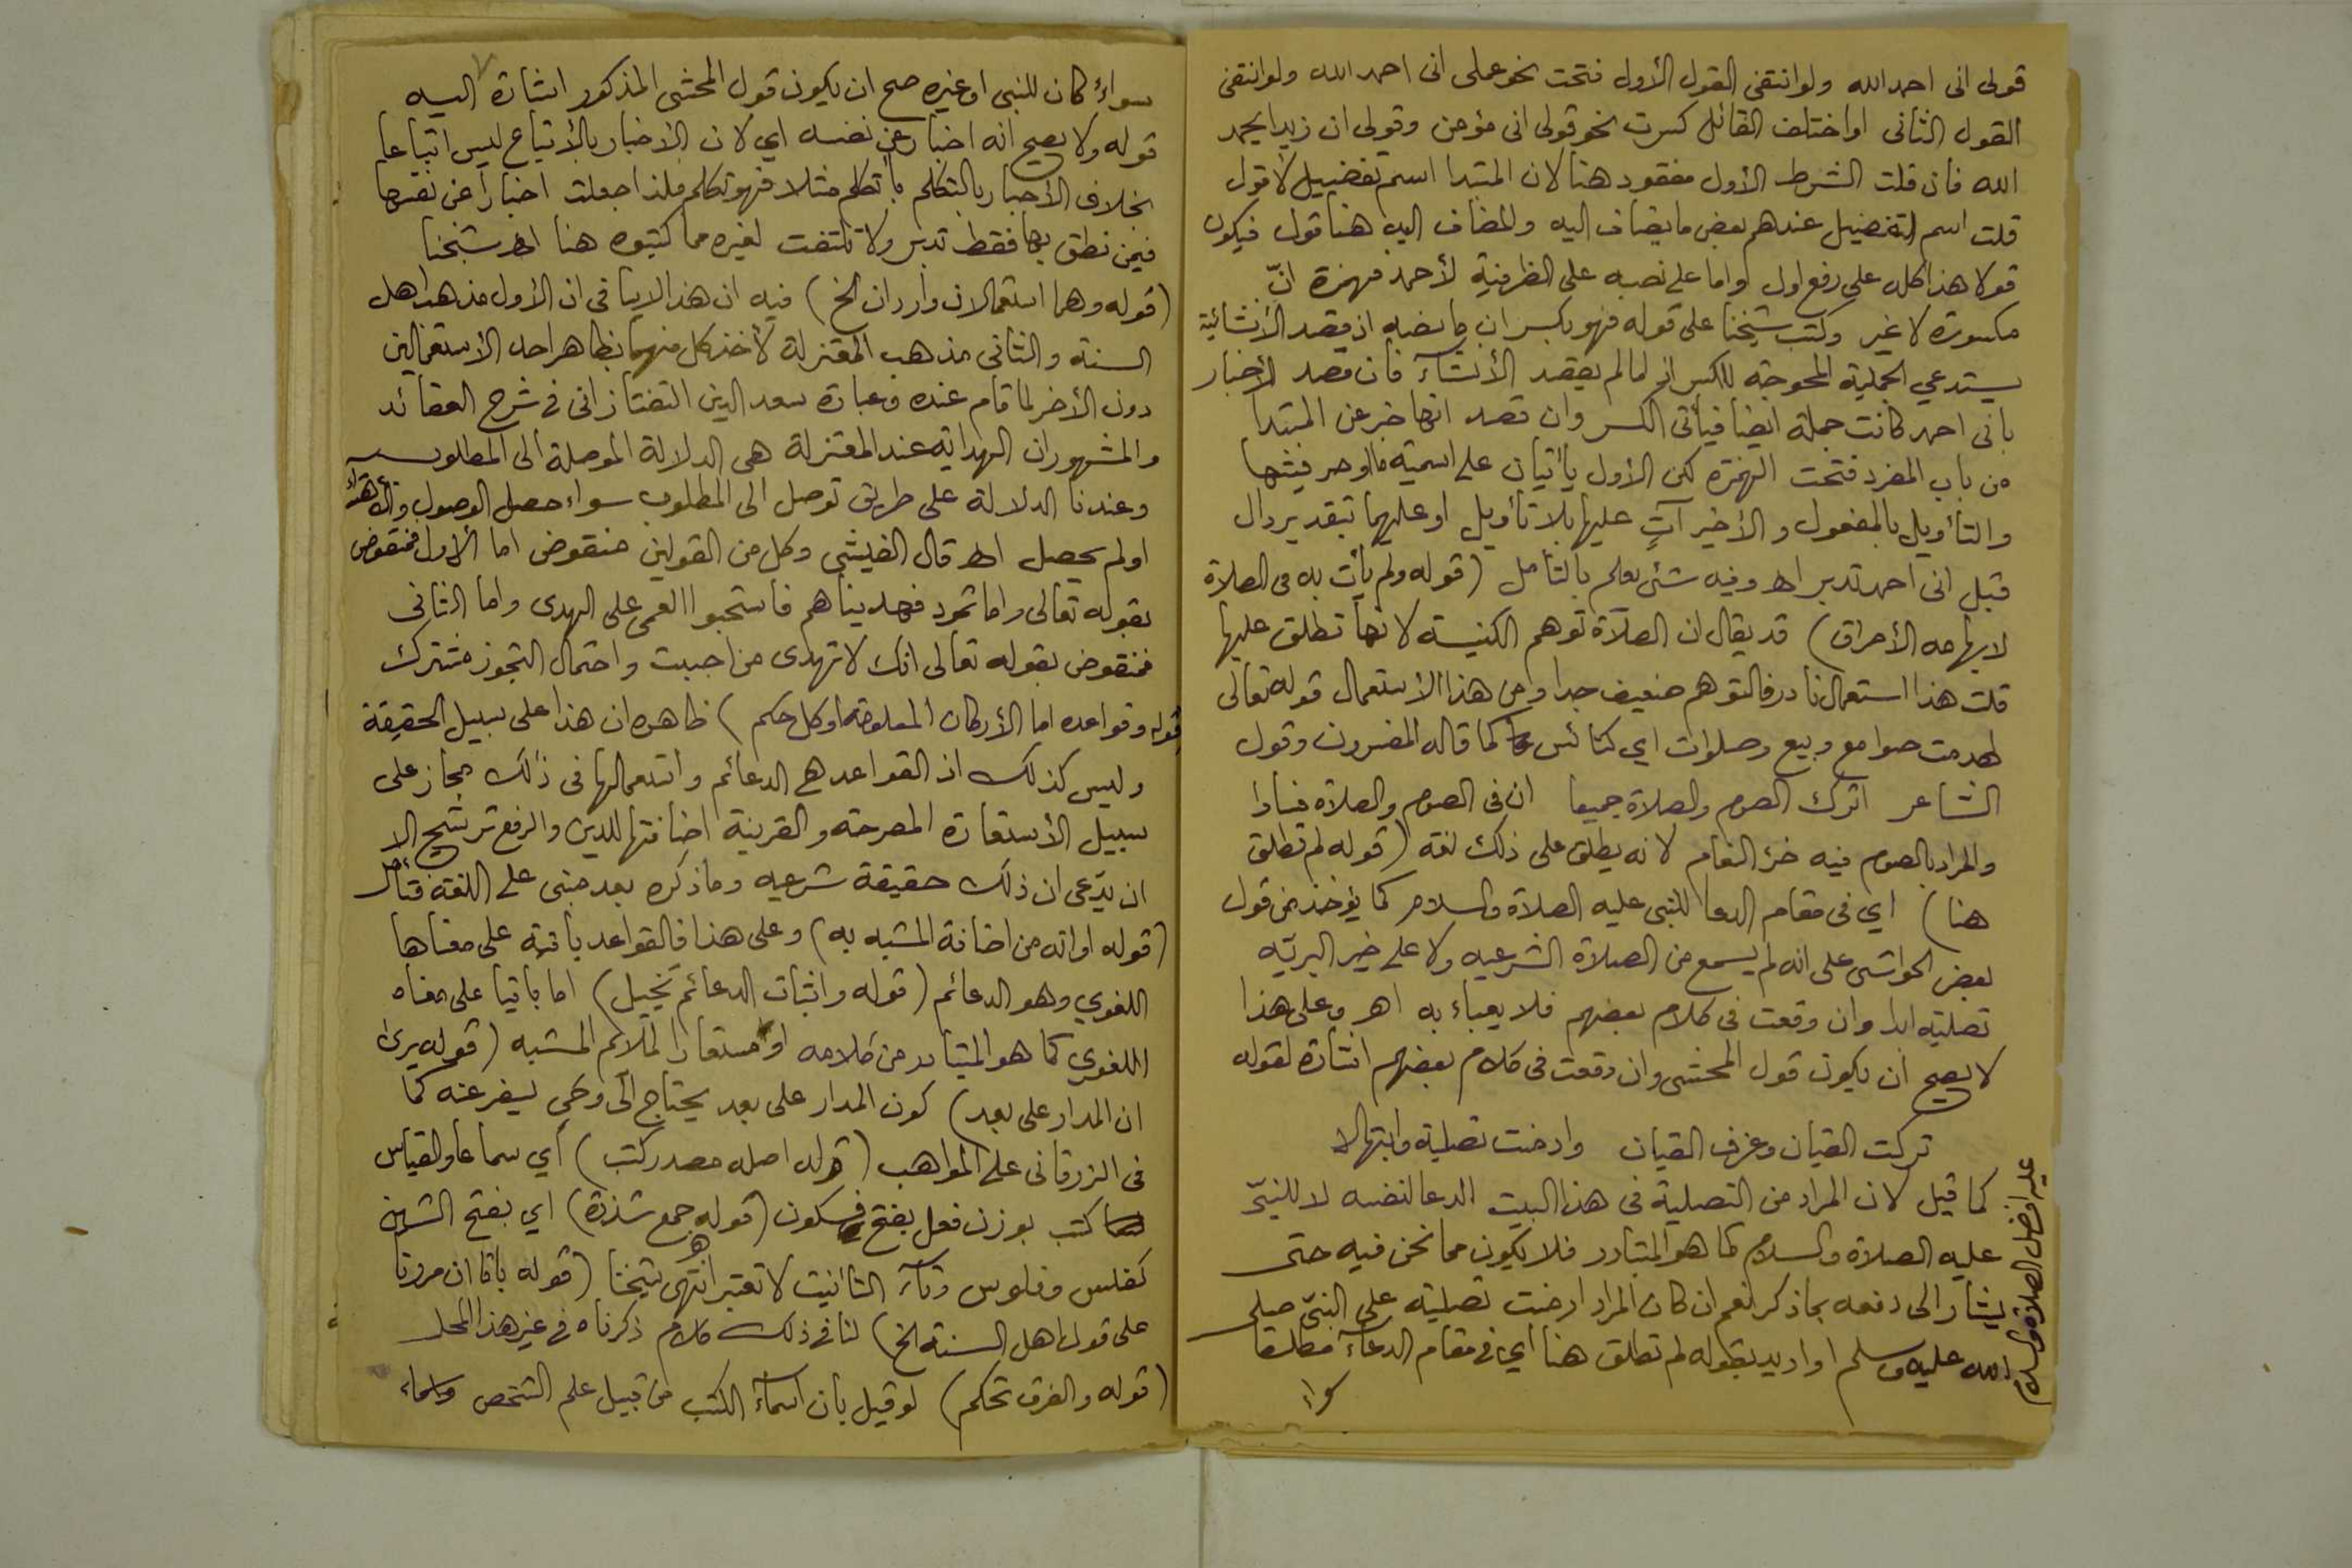 قولى انى احمد الله ولو انتفى القول الأول فتحت نحو عملى انى احمد الله ولو انتفى
القول الثانى او اختلف القائل كسرت نحو قولى انى مؤمن وقولى ان زيدا يحمد
الله فان قلت الشرط الأول مفقود هنا لان المبتدا اسم تفضيل لا قول
قلت اسم التفضيل عندهم بعض ما يضاف اليه والمضاف اليه هنا قول فيكون
قولا هذا كله على رفع اول واما على نصبه على الظرفية لأحمد فهمزة انّ
مكسورة لا غير وكتب شيخنا على قوله فهو بكسر ان ما نصه اذ قصد الأنشائية
يستدعي الجملية المحوجة للكسر اما لم يقصد الأنشآء فان قصد الأخبار
بانى احمد كانت جملة ايضا فيأتى الكسر وان قصد انها خبر عن المبتدا
من باب المفرد فتحت الهمزة لكن الأول يأتيان على اسمية ما او حرفيتها
والتأويل بالمفعول والأخير آتٍ عليها بلا تأويل او عليهما بتقدير دال
قبل انى احمد تدبر اهـ وفيه شئ يعلم بالتأمل (قوله ولم يأت به فى الصلاة
لايهامه الأحراق) قد يقال ان الصلآة توهم الكنيسة لانها تطلق عليها
قلت هذا استعمال نادر فالتوهم ضعيف جدا ومن هذا الاستعمال قوله تعالى
لهدمت صوامع وبيع وصلوات اي كنائس كما قاله المفسرون وقول
الشاعر اترك الصوم والصلاة جميعا ان فى الصوم والصلاة فسادا
والمراد بالصوم فيه خرؤ النعام لانه يطلق على ذلك لغة (قوله لم تطلق
هنا) اي فى مقام الدعا للنبى عليه الصلاة والسلام كما يؤخذ من قول
بعض الحواشى على انه لم يسمع من الصلاة الشرعيه ولا على خير البريّه
تصليته ابدا وان وقعت فى كلام بعضهم فلا يعباء به اهـ وعلى هذا
لا يصح ان يكون قول المحشى وان وقعت فى كلام بعضهم اشارة لقوله
تركت القيان وعزف القيان وادمنت تصلية وابتهالا
كما قيل لان المراد من التصلية فى هذا البيت الدعا لنفسه لا للنبىّ
عليه الصلاة والسلام كما هو المتبادر فلا يكون مما نحن فيه حتى
يشار الى دفعه بما ذكر نعم ان كان المراد ادمنت تصلية على النبىّ صلى
الله عليه وسلم او اريد بقوله لم تطلق هنا اي فى مقام الدعآء مطلقا
سواء
عليه افضل الصلاة والسلام
سواء كان للنبى او غيره صح ان يكون قول المحشى المذكور اشارة اليه
قوله ولا يصح انه اخبار عن نفسه اي لان الاخبار بالأتباع ليس اتباعا
بخلاف الأخبار بالتكلم بأتكلم مثلا فهو تكلم فلذا جعلت اخبارا عن نفسها
فيمن نطق بها فقط تدبر ولا تلتفت لغيره مما كتبوه هنا اهـ شيخنا
(قوله وهما استعمالان واردان الخ) فيه ان هذا لا ينافى ان الأول مذهب اهل
السنة والثانى مذهب المعتزلة لأخذ كل منهما بظاهر احد الأستعمالين
دون الأخر لما قام عنده وعبارة سعد الدين التفتازانى فى شرح العقائد
والمشهور ان الهداية عند المعتزلة هى الدلالة الموصلة الى المطلوب
وعندنا الدلالة على طريق توصل الى المطلوب سواء حصل الوصول والأهتداء
او لم يحصل اهـ قال الفيشى وكل من القولين منقوض اما الأول فمنقوض
بقوله تعالى واما ثمود فهديناهم فاستحبوا العمى على الهدى واما الثانى
فمنقوض بقوله تعالى انك لا تهدى من احببت واحتمال التجوز مشترك
قوله وقواعده اما الأركان المعلومة او كل حكم) ظاهره ان هذا على سبيل الحقيقة
وليس كذلك اذ القواعد هى الدعائم واستعمالها فى ذلك مجاز على
سبيل الأستعارة المصرحة والقرينة اضافتها للدين والرفع ترشيح الا
ان يدّعى ان ذلك حقيقة شرعيه وما ذكره بعد مبنى على اللغة فتأمل
(قوله او انه من اضافة المشبه به) وعلى هذا فالقواعد باقية على معناها
اللغوي وهو الدعائم (قوله واثبات الدعائم تخييل) اما باقيا على معناه
اللغوي كما هو المتبادر من كلامه او مستعارا لملائم المشبه (قوله يرى
ان المدار على بعد) كون المدار على بعد يحتاج الى وحي يسفر عنه كما
فى الزرقانى على المواهب (قوله اصله مصدر كتب) أي سماعا والقياس
كتب بوزن فعل بفتح فسكون (قوله جمع شذرة) اي بفتح الشين
كفلس وفلوس وتآء التأنيث لا تعتبر انتهى شيخنا (قوله باقا ان مرونا
على قول اهل السنة الخ) لنا فى ذلك كلام ذكرناه فى غير هذا المحل
(قوله والفرق تحكم) لو قيل بأن اسمآء الكتب من قبيل علم الشخص واسماء